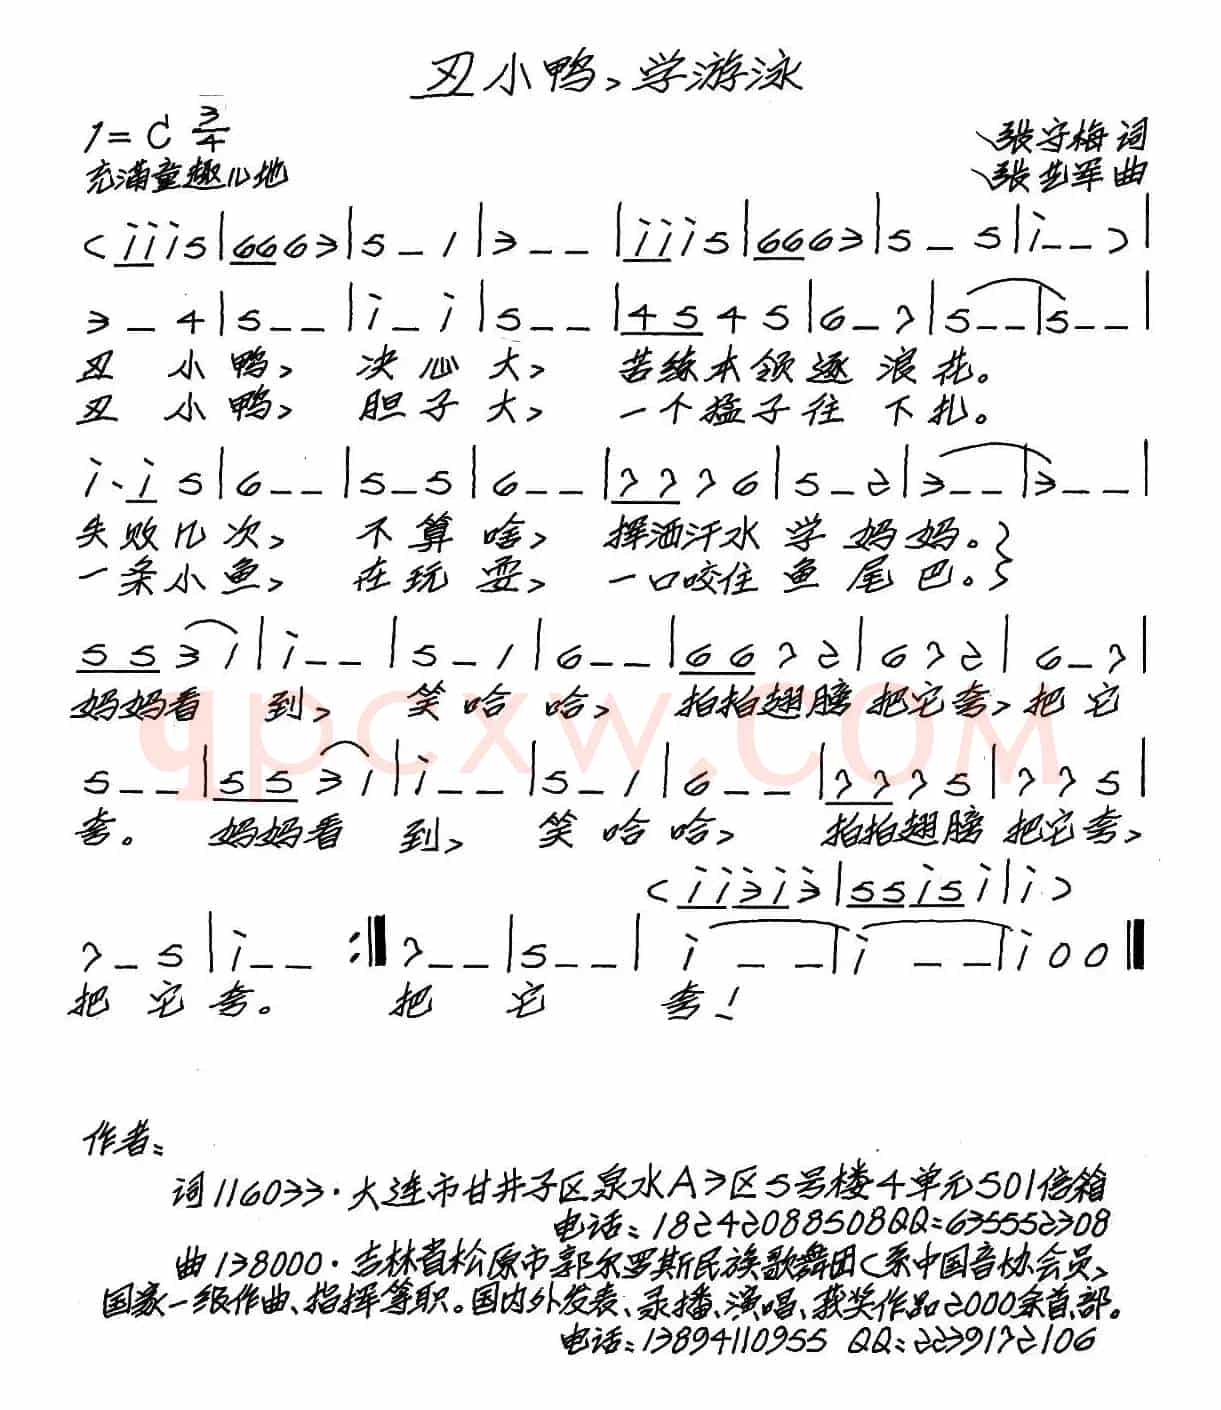 丑小鸭,学游泳
1=C 3/4
张守梅 词
充满童趣儿地
张艺军 曲
(i i i 5|6 6 6 3|5 – 1|3 – –|i i i 5|6 6 6 3|5 – 5|i – –)|
3 – 4|5 – –|i – i|5 – –|4 5 4 5|6 – 7|5 – –|5 – –|
丑 小 鸭, 决 心 大, 苦练本领逐 浪 花。
丑 小 鸭, 胆 子 大, 一个猛子往 下 扎。
i· i 5|6 – –|5 – 5|6 – –|7 7 7 6|5 – 2|3 – –|3 – –|
失败几 次, 不 算 啥, 挥洒汗水 学 妈 妈。}
一条小 鱼, 在 玩 耍, 一口咬住 鱼 尾 巴。}
5 5 3 1|i – –|5 – 1|6 – –|6 6 7 2|6 7 2|6 – 7|
妈妈看 到, 笑 哈 哈, 拍拍翅膀 把它夸,把 它
5 – –|5 5 3 1|i – –|5 – 1|6 – –|7 7 7 5|7 7 5|
夸。 妈妈看 到, 笑 哈 哈, 拍拍翅膀 把它夸,
(i i 3 i 3|5 5 i 5 i|i)
7 – 5|i – – :‖ 7 – –|5 – –|i – –|i – –|i 0 0‖
把 它 夸。 把 它 夸!
作者:
词116033·大连市甘井子区泉水A3区5号楼4单元501信箱
电话:18242088508QQ=635552308
曲138000·吉林省松原市郭尔罗斯民族歌舞团(系中国音协会员,
国家一级作曲、指挥等职。国内外发表、录播、演唱、获奖作品2000余首、部。
电话:13894110955 QQ:2239172106
qpcxw.com